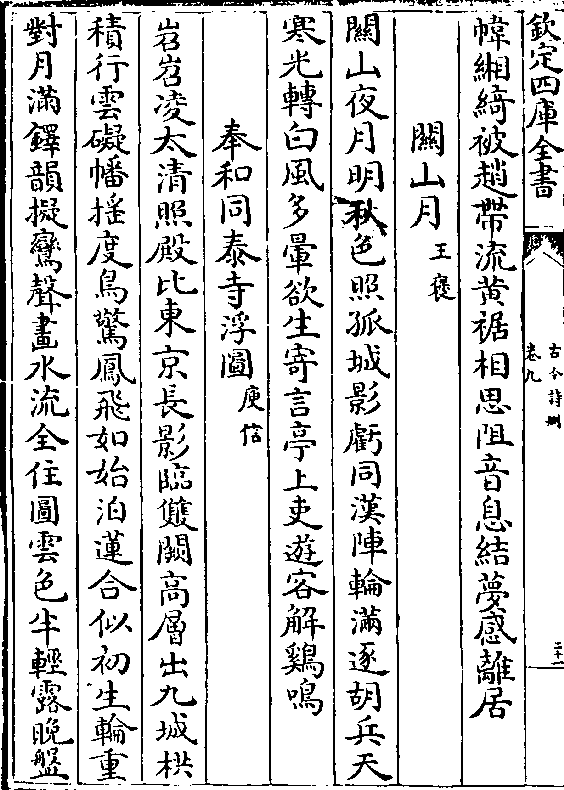 欽定四庫全書
古今詩刪
卷九
二十一
幃緗綺被趙帶流黃裾相思阻音息結夢感離居
關山月王褒
關山夜月明秋色照孤城影虧同漢陣輪滿逐胡兵天
寒光轉白風多暈欲生寄言亭上吏遊客解鷄鳴
奉和同泰寺浮圖庾信
岧岧凌太清照殿比東京長影臨雙闕高層出九城栱
積行雲礙幡揺度鳥驚鳳飛如始泊蓮合似初生輪重
對月滿鐸韻擬鸞聲畫水流全住圖雲色半輕露晩盤